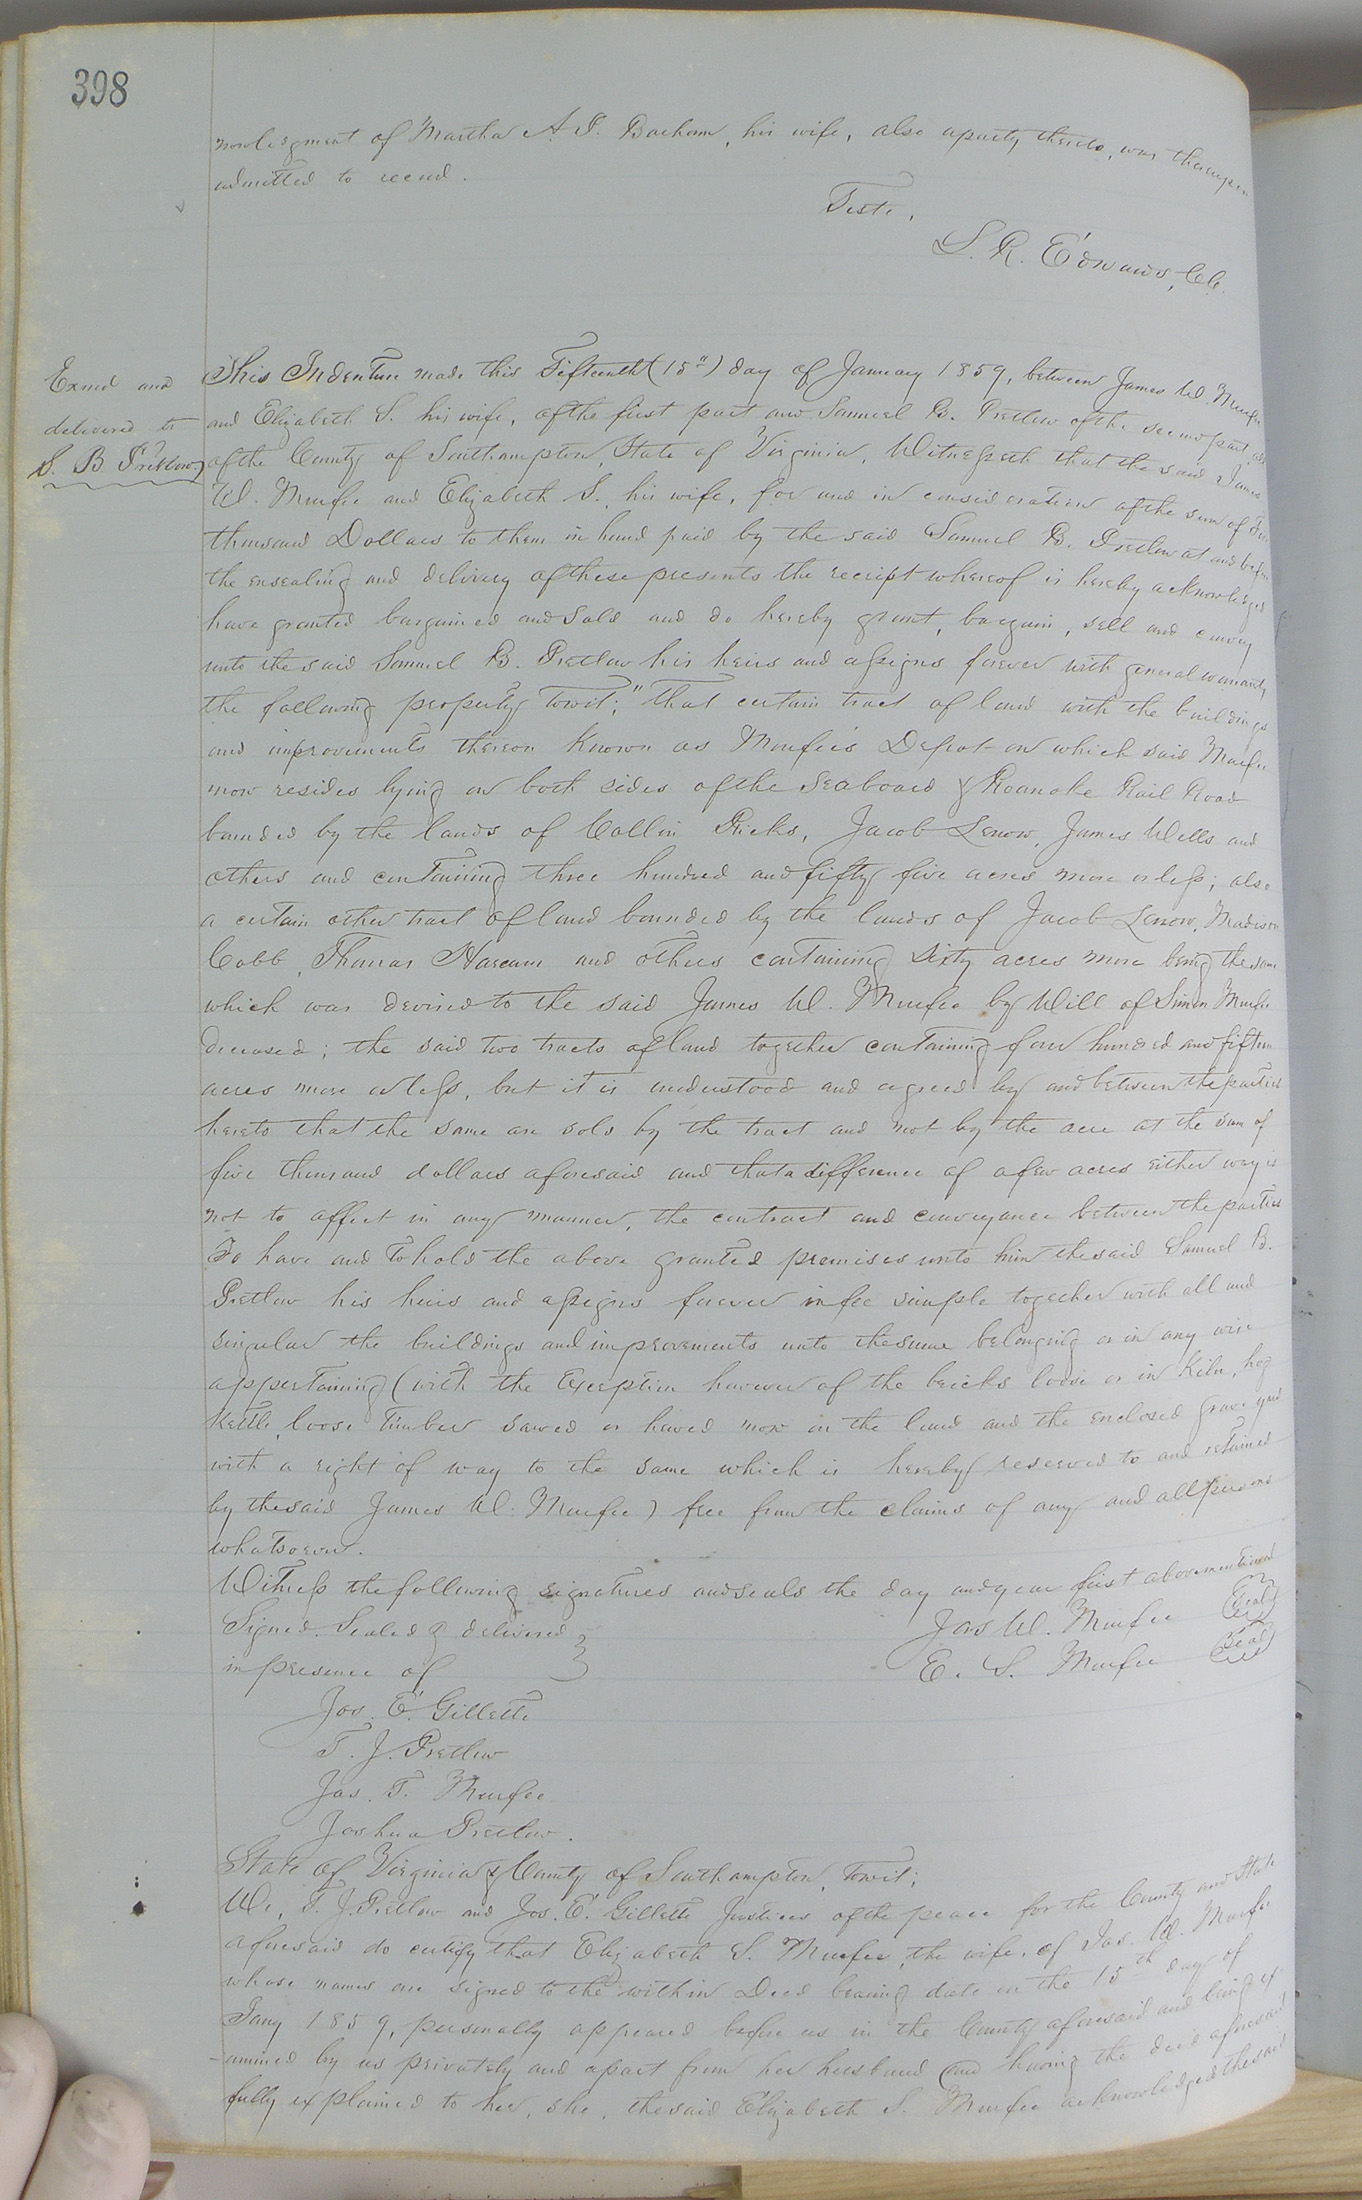 398
nowlegment of Martha A. J. Barham, his wife, also a party thereto, was thereupon
admitted to record.
Teste,
L. R. Edwards, C.C.
Exmd and
delivered to
S. B. Pretlow
This Indenture made this Fifteenth (15") day of January 1859, between James W. Murfee
and Elizabeth S. his wife, of the first part and Samuel B. Pretlow of the second part, all
of the County of Southampton, State of Virginia, Witnesseth that the said James
W. Murfee and Elizabeth S., his wife, for and in consideration of the sum of five
thousand Dollars to them in hand paid by the said Samuel B. Pretlow at and before
the ensealing and delivery of these presents the receipt whereof is hereby acknowledged
have granted bargained and sold and do hereby grant, bargain, sell and convey
unto the said Samuel B. Pretlow his heirs and assigns forever with general warranty
the following property Towit; "That certain tract of land with the buildings
and improvements thereon Known as Murfee's Depot on which said Murfee
now resides lying on both sides of the Seaboard & Roanoke Rail Road
bounded by the lands of Collin Ricks, Jacob Lenow, James Wells and
others and containing three hundred and fifty five acres more or less; also
a certain other tract of land bounded by the lands of Jacob Lenow, Madison
Cobb, Thomas Harcum and others containing Sixty acres more being the same
which was devised to the said James W. Murfee by Will of Simon Murfee
deceased; the said two tracts of land together containing four hundred and fifteen
acres more or less, but it is understood and agreed by and between the parties
hereto that the same are sold by the tract and not by the acre at the sum of
five thousand dollars aforesaid and that a difference of a few acres either way is
not to affect in any manner, the contract and conveyance between the parties
To have and to hold the above granted premises unto him the said Samuel B.
Pretlow his heirs and assigns forever in fee simple together with all and
singular the buildings and improvements unto the same belonging or in any wise
appertaining (with the Exception however of the bricks loose or in Kiln, hog
Kettle, loose Timber sawed or hewed now on the land and the enclosed grave yard
with a right of way to the same which is hereby reserved to and retained
by the said James W. Murfee) free from the claims of any and all persons
whatsoever.
Witness the following signatures and seals the day and year first abovementioned
Signed. Sealed & delivered
Jas W. Murfee Seal
in presence of
E. S. Murfee Seal
Jos. E. Gillette
T. J. Pretlow
Jas. T. Murfee
Joshua Pretlow.
State of Virginia & County of Southampton, Towit;
We, T. J. Pretlow and Jos. E. Gillette Justices of the peace for the County and State
aforesaid do certify that Elizabeth S. Murfee, the wife, of Jas. W. Murfee
whose names are signed to the within Deed bearing date on the 15th day of
Jany 1859, personally appeared before us in the County aforesaid and being ex-
-amined by us privately and apart from her husband and having the deed aforesaid
fully explained to her, she, the said Elizabeth S. Murfee acknowledged the said